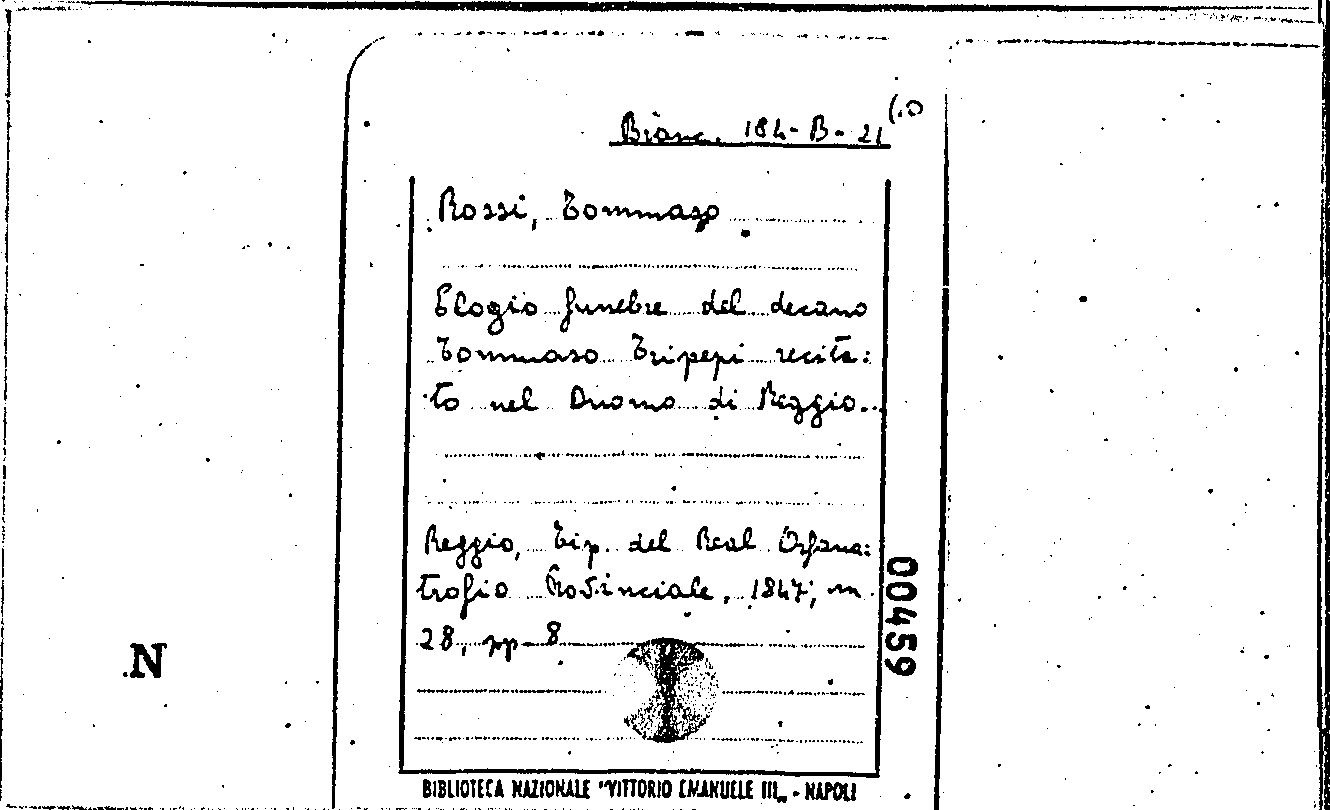 Branc. 184-B-21 (10
Rossi, Tommaso
Elogio funebre del decano
Tommaso Tripepi recita:
to nel Duomo di Reggio.
Reggio, Tip. del Real Orfana:
trofio Provinciale, 1847, in
28, pp 8
00459
N
BIBLIOTECA NAZIONALE "VITTORIO EMANUELE III„ - NAPOLI